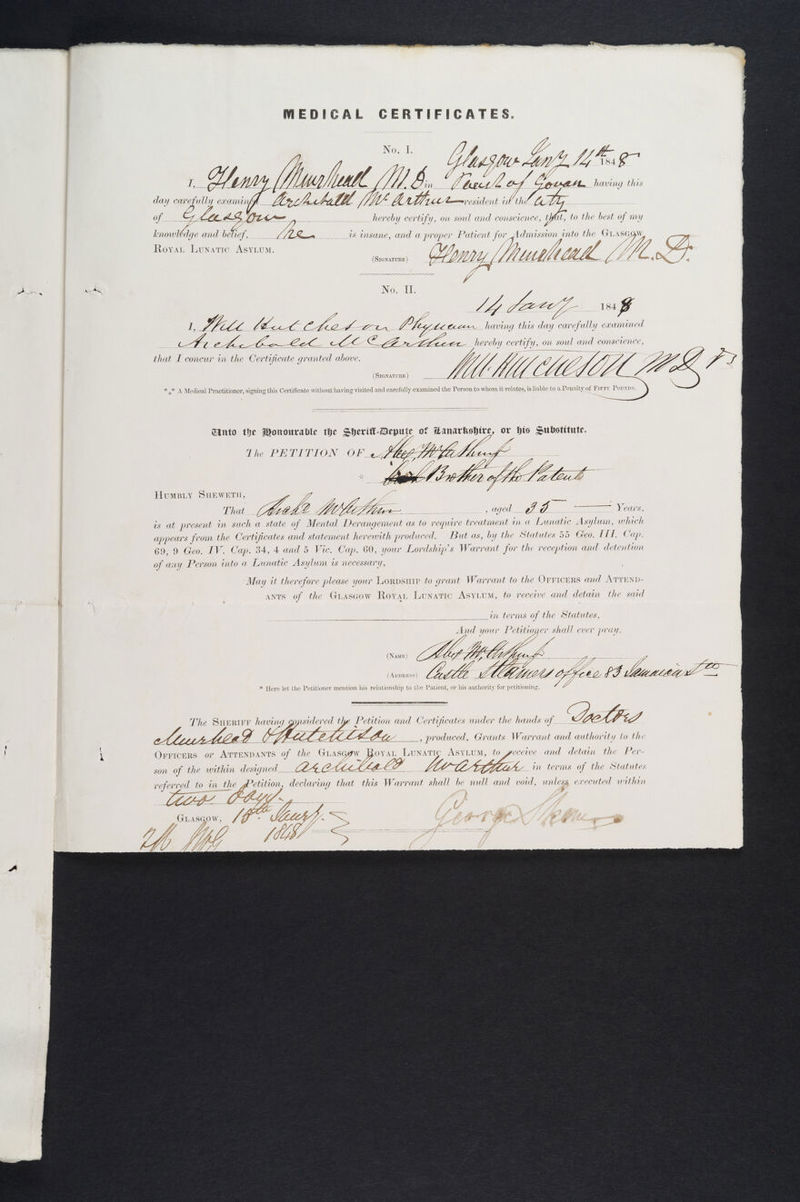 MEDICAL CERTIFICATES.
No. I.
Glasgow Jany 14th 1848
I, Henry Muirhead M.D. in Parish of Govan having this
day carefully examined Archibald McArthur resident in the City
of Glasgow hereby certify, on soul and conscience, that, to the best of my
knowledge and belief, he is insane, and a proper Patient for Admission into the GLASGOW
ROYAL LUNATIC ASYLUM.
(SIGNATURE) Henry Muirhead M.D.
No. II.
14 Jany 1848
I, Will Hutcheson Physician having this day carefully examined
Archibald McArthur hereby certify, on soul and conscience,
that I concur in the Certificate granted above.
(SIGNATURE) Will Hutcheson MD
*** A Medical Practitioner, signing this Certificate without having visited and carefully examined the Person to whom it relates, is liable to a Penalty of FIFTY POUNDS.
Unto the Honourable the Sheriff-Depute of Lanarkshire, or his Substitute.
The PETITION OF Alex McArthur
* Brother of the Patent
HUMBLY SHEWETH,
That Archd McArthur, aged 35 Years,
is at present in such a state of Mental Derangement as to require treatment in a Lunatic Asylum, which
appears from the Certificates and statement herewith produced. But as, by the Statutes 55 Geo. III. Cap.
69, 9 Geo. IV. Cap. 34, 4 and 5 Vic. Cap. 60, your Lordship's Warrant for the reception and detention
of any Person into a Lunatic Asylum is necessary,
May it therefore please your LORDSHIP to grant Warrant to the OFFICERS and ATTEND-
ANTS of the GLASGOW ROYAL LUNATIC ASYLUM, to receive and detain the said
in terms of the Statutes.
And your Petitioner shall ever pray.
(NAME) Alex McArthur
(ADDRESS) Castle Steamers office 83 Jamaica St
* Here let the Petitioner mention his relationship to the Patient, or his authority for petitioning.
The SHERIFF having considered the Petition and Certificates under the hands of Doctors
Muirhead & Hutchison, produced, Grants Warrant and authority to the
OFFICERS or ATTENDANTS of the GLASGOW ROYAL LUNATIC ASYLUM, to receive and detain the Per-
son of the within designed Archibald McArthur in terms of the Statutes
referred to in the Petition, declaring that this Warrant shall be null and void, unless executed within
two days.
GLASGOW, 18th Jany.
1848
George Skene